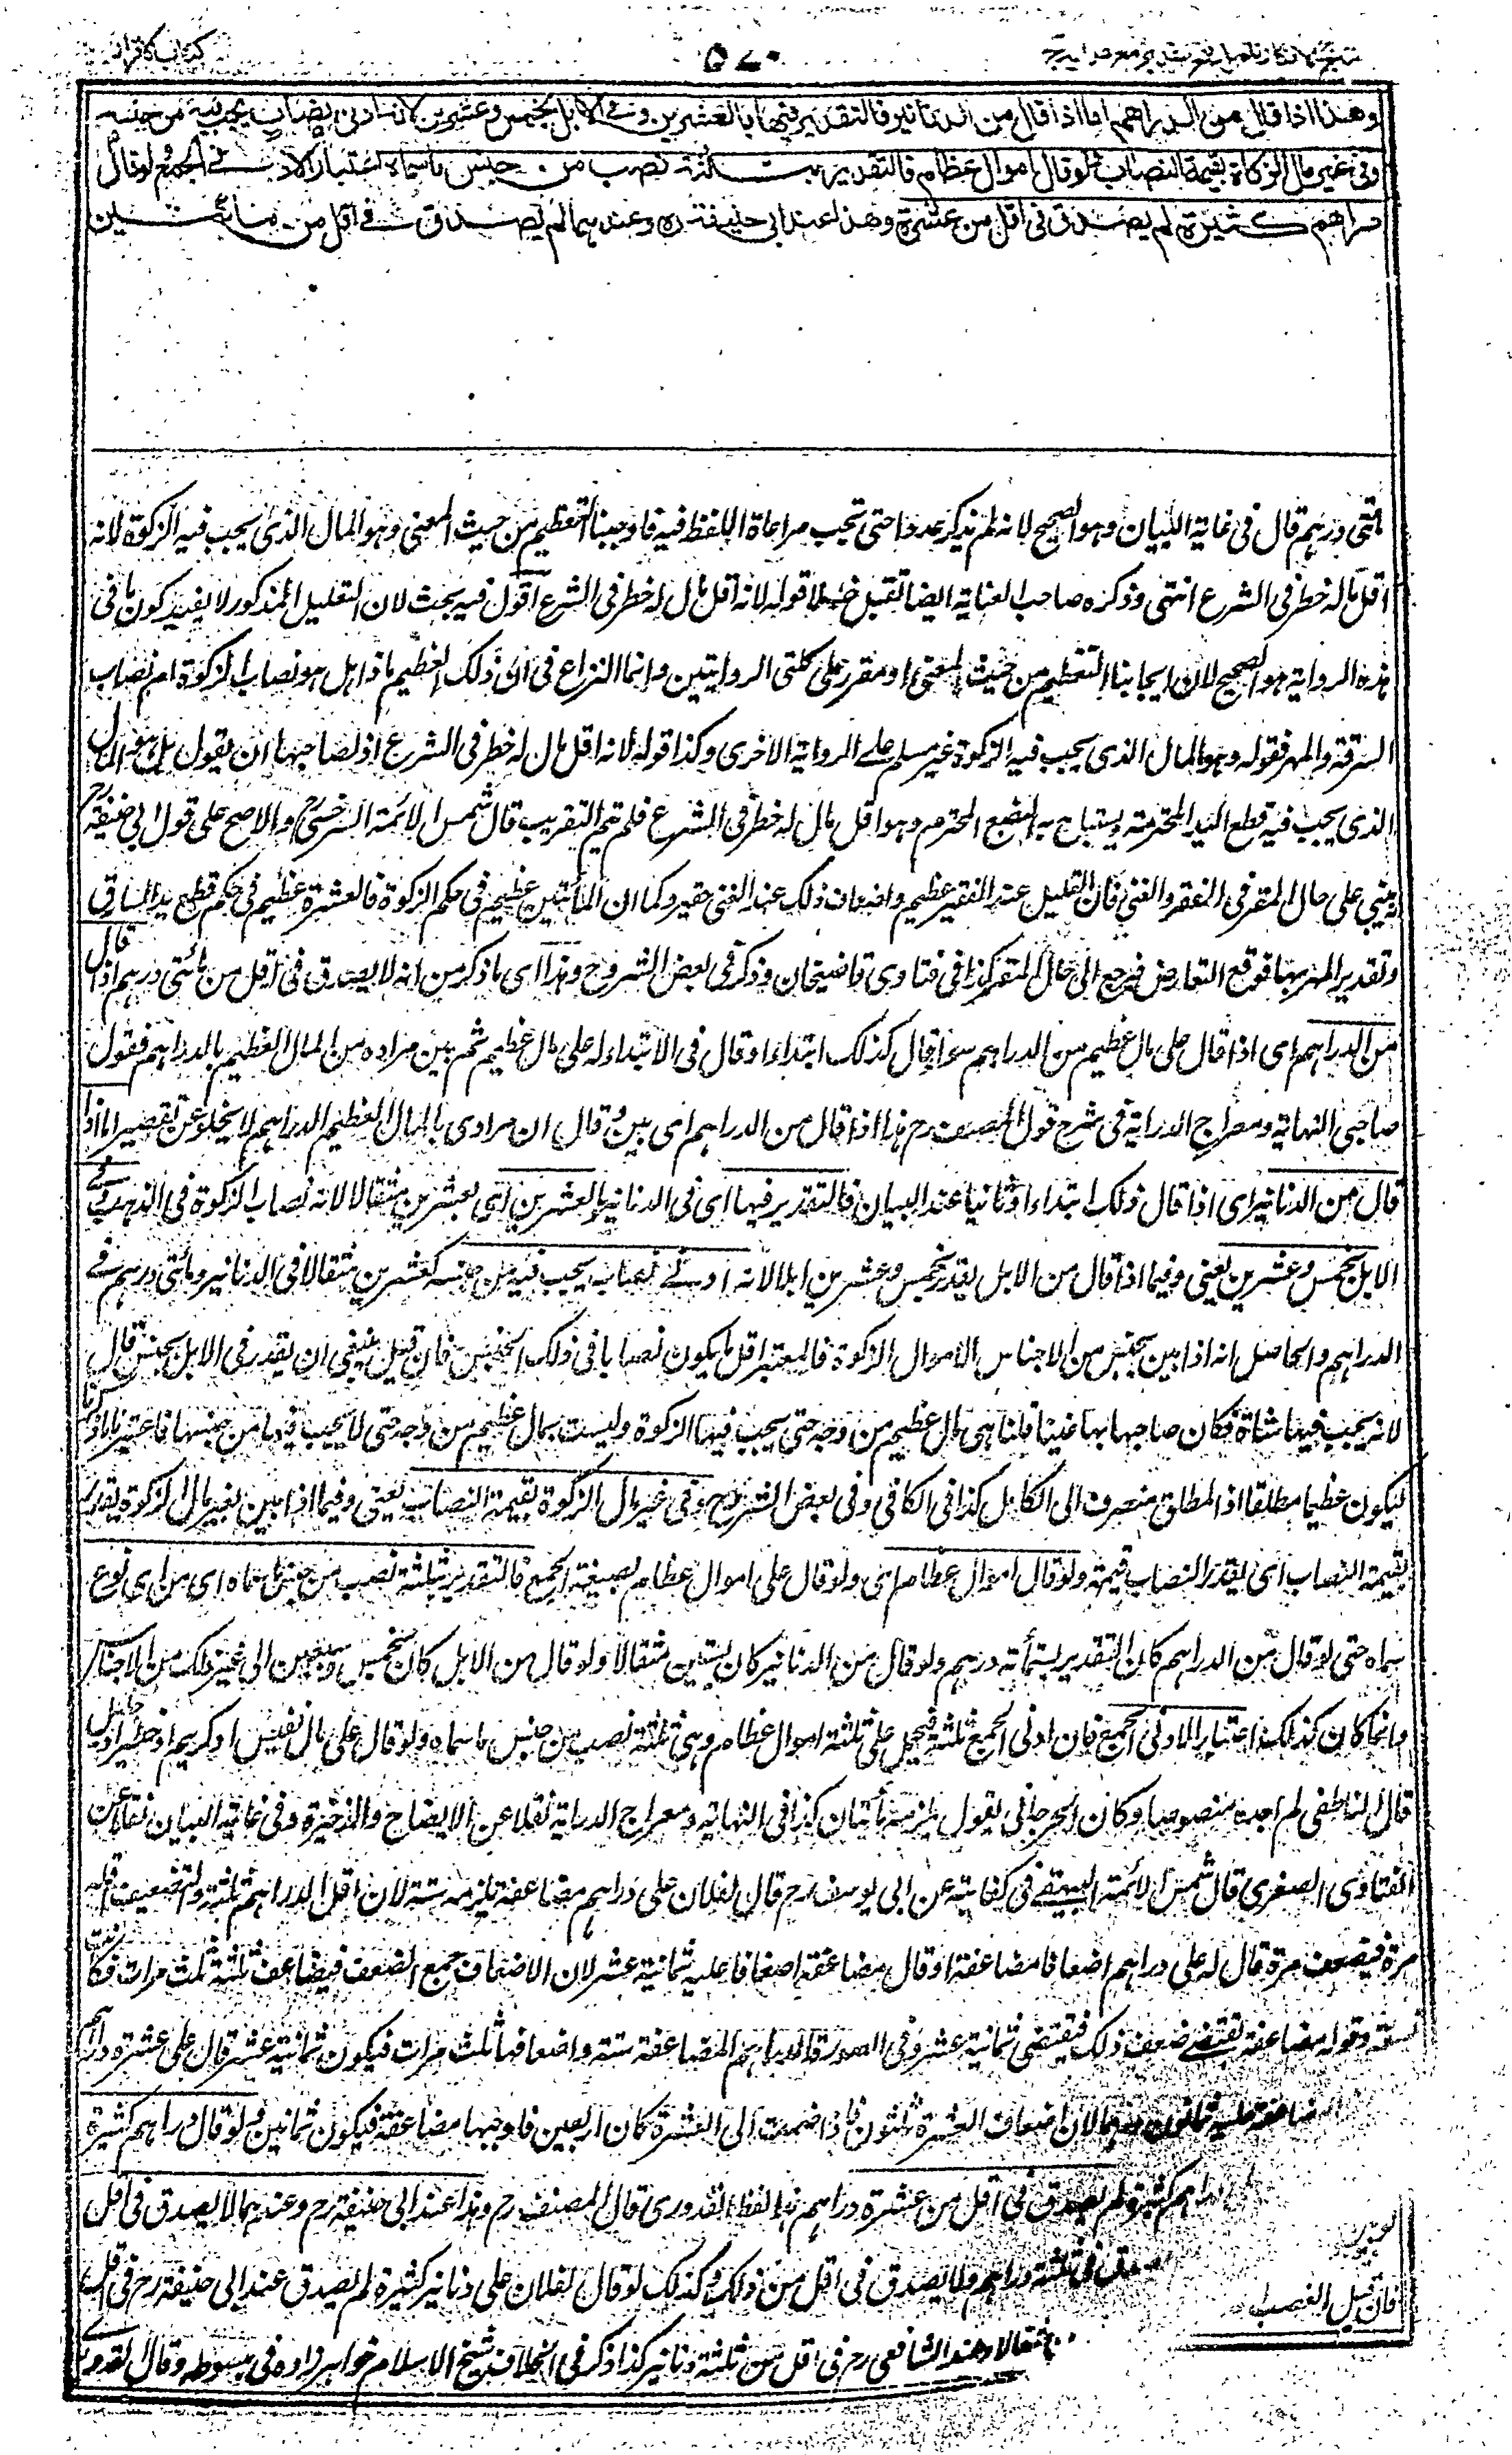 كتاب الاقرار
٥٧٠
وهذا اذا قال من الدراهم اما اذا قال من الدنانير فالتقدير فيها بالعشرين وفي الابل بخمس وعشرين لانه ادنى نصاب يجب فيه من جنسه
وفي غير مال الزكاة بقيمة النصاب ولو قال اموال عظام فالتقدير بثلثة نصب من جنس ما سماه اعتبارا لادنى الجمع ولو قال
دراهم كثيرة لم يصدق في اقل من عشرة وهذا عند ابي حنيفة ره وعندهما لم يصدق في اقل من مائتين
مئتي درهم قال في غاية البيان وهو الصحيح لانه لم يذكر عددا حتى تجب مراعاة اللفظ فيه فاوجبنا التعظيم من حيث المعنى وهو المال الذي يجب فيه الزكوة لانه
اقل مال له خطر في الشرع انتهى وذكره صاحب العناية ايضا اقول فيه بحث لان التعليل المذكور لا يفيد كون ما في
هذه الرواية هو الصحيح لان ايجابنا التعظيم من حيث المعنى مقرر على كلتي الروايتين وانما النزاع في ان ذلك العظيم ماذا هل هو نصاب الزكوة ام نصاب
السرقة والمهر فقوله وهو المال الذي يجب فيه الزكوة غير مسلم على الرواية الاخرى وكذا قوله لانه اقل مال له خطر في الشرع اذ لصاحبها ان يقول بل هو المال
الذي يجب فيه قطع اليد المحترمة ويستباح به البضع المحترم وهو اقل مال له خطر في الشرع فلم يتم التقريب قال شمس الائمة السرخسي رح والاصح على قول ابي حنيفة رح
انه يبني على حال المقر في الفقر والغنى فان القليل عند الفقير عظيم واضعاف ذلك عند الغني حقير وكما ان المأتين عظيم في حكم الزكوة فالعشرة عظيم في حكم قطع يد السارق
وتقدير المهر بها فوقع التعارض فيرجع الى حال المقر كذا في فتاوى قاضيخان وذكر في بعض الشروح وهذا اى ما ذكر من انه لا يصدق في اقل من مائتي درهم اذا قال
من الدراهم اى اذا قال على مال عظيم من الدراهم سواء قال كذلك ابتداء او قال في الابتداء له على مال عظيم ثم بين مراده من المال العظيم بالدراهم فقول
صاحبي النهاية ومعراج الدراية في شرح قول المصنف رح هذا اذا قال من الدراهم اى بين وقال ان مرادي بالمال العظيم الدراهم لا يخلو عن تقصير اما اذا
قال من الدنانير اى اذا قال ذلك ابتداء او ثانيا عند البيان فالتقدير فيها اى في الدنانير بالعشرين اى بعشرين مثقالا لانه نصاب الزكوة في الذهب وفي
الابل بخمس وعشرين يعني وفيما اذا قال من الابل يقدر بخمس وعشرين ابلا لانه ادنى نصاب يجب فيه من جنسه كعشرين مثقالا في الدنانير ومائتي درهم في
الدراهم والحاصل انه اذا بين بجنس من الاجناس الاموال الزكوة فالمعتبر اقل ما يكون نصابا في ذلك الجنس فان قيل ينبغي ان يقدر في الابل بخمس قال
لانه يجب فيها شاة فكان صاحبها بها غنيا قلنا هي مال عظيم من وجه حتى يجب فيها الزكوة وليست بمال عظيم من وجه حتى لا يجب فيها من جنسها فاعتبرنا ما ذكرنا
ليكون عظيما مطلقا اذ المطلق منصرف الى الكامل كذا في الكافي وفي بعض الشروح وفي غير مال الزكوة بقيمة النصاب يعني وفيما اذا بين بغير مال الزكوة يقدر
بقيمة النصاب اى بقدر النصاب قيمة ولو قال اموال عظام اى ولو قال على اموال عظام بصيغة الجمع فالتقدير بثلثة نصب من جنس ما سماه اى من اى نوع
سماه حتى لو قال من الدراهم كان التقدير بستمأته درهم ولو قال من الدنانير كان بستين مثقالا ولو قال من الابل كان بخمس وسبعين الى غير ذلك من الاجناس
وانما كان كذلك اعتبارا لادنى الجمع فان ادنى الجمع ثلثة فيحمل على ثلثة اموال عظام وهي ثلثة نصب من جنس ما سماه ولو قال على مال نفيس او كريم او خطير او جليل
قال الناطفي لم اجده منصوصا وكان الجرجاني يقول يلزمه مأتان كذا في النهاية ومعراج الدراية نقلا عن الايضاح والذخيرة وفي غاية البيان نقلا عن
الفتاوى الصغرى قال شمس الائمة البيهقي في كفايته عن ابي يوسف رح قال لفلان على دراهم مضاعفة يلزمه ستة لان اقل الدراهم ثلثة والتضعيف اقله
مرة فيضعف مرة قال له على دراهم اضعافا مضاعفة او قال مضاعفة اضعافا عليه ثمانية عشر لان الاضعاف جمع الضعف فيضاعف ثلثة ثلث مرات فكانت
تسعة وقوله مضاعفة يقتضي ضعف ذلك فيقتضي ثمانية عشر وفي الصورة الدراهم المضاعفة ستة واضعافها ثلث مرات فيكون ثمانية عشر قال على عشرة دراهم
مضاعفة عليه ثمانون درهما لان اضعاف العشرة ثلثون فاذا ضمت الى العشرة كان اربعين فاوجبها مضاعفة فيكون ثمانين ولو قال دراهم كثيرة
دراهم كثيرة لم يصدق في اقل من عشرة دراهم هذا لفظ القدوري قال المصنف رح وهذا عند ابي حنيفة رح وعندهما لا يصدق في اقل
يصدق في ثلثة دراهم ولا يصدق في اقل من ذلك وكذلك لو قال لفلان على دنانير كثيرة لم يصدق عند ابي حنيفة رح في اقل
مثقالا وعند الشافعي رح في اقل من ثلثة دنانير كذا ذكر في الخلاف شيخ الاسلام خواهر زاده في مبسوطه وقال القدوري
فان قيل الغصب